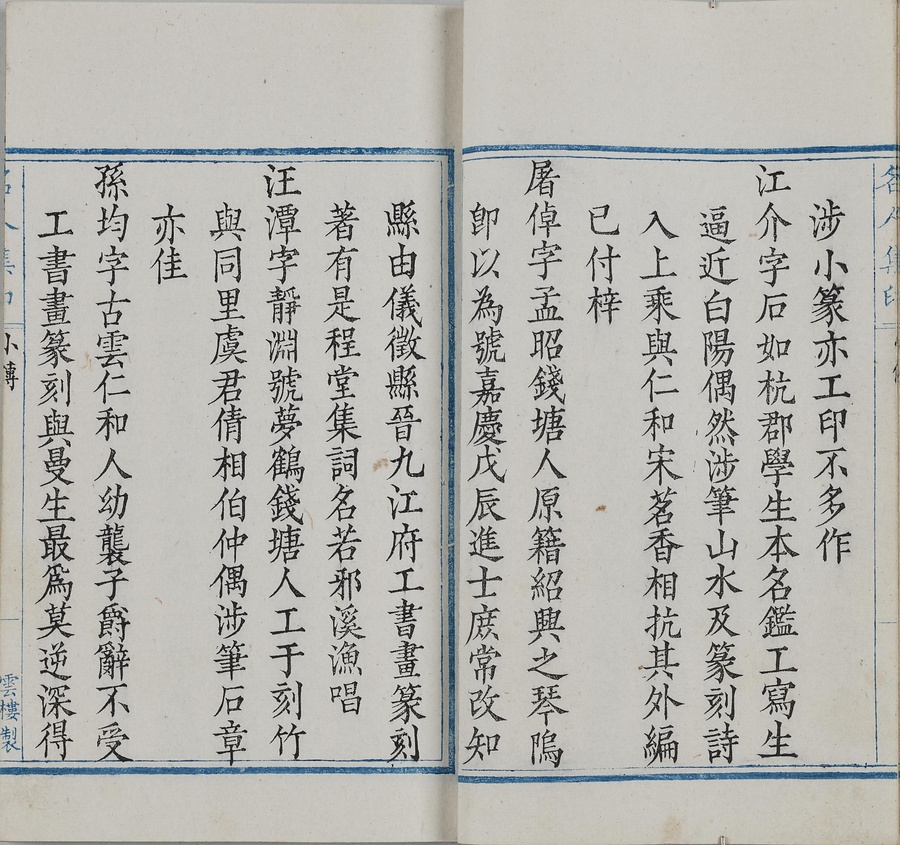 涉小篆亦工印不多作
江介字石如杭郡學生本名鑑工寫生
逼近白陽偶然涉筆山水及篆刻詩
入上乘與仁和宋茗香相抗其外編
已付梓
屠倬字孟昭錢塘人原籍紹興之琴隖
卽以為號嘉慶戊辰進士庶常改知
縣由儀徵縣晉九江府工書畫篆刻
著有是程堂集詞名若邪溪漁唱
汪潭字靜淵號夢鶴錢塘人工于刻竹
與同里虞君倩相伯仲偶涉筆石章
亦佳
孫均字古雲仁和人幼襲子爵辭不受
工書畫篆刻與曼生最爲莫逆深得
名人集印
小傳
雲樓製